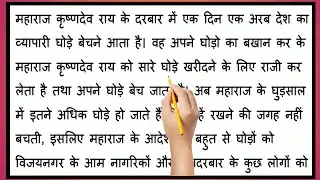 महाराज कृष्णदेव राय के दरबार में एक दिन एक अरब देश का
व्यापारी घोड़े बेचने आता है। वह अपने घोड़ो का बखान कर के
महाराज कृष्णदेव राय को सारे घोड़े खरीदने के लिए राजी कर
लेता है तथा अपने घोड़े बेच है। अब महाराज के घुड़साल
में इतने अधिक घोड़े हो जाते हैं रखने की जगह नहीं
बचती, इसलिए महाराज के बहुत से घोड़ों को
विजयनगर के आम नागरिकों दरबार के कुछ लोगों को